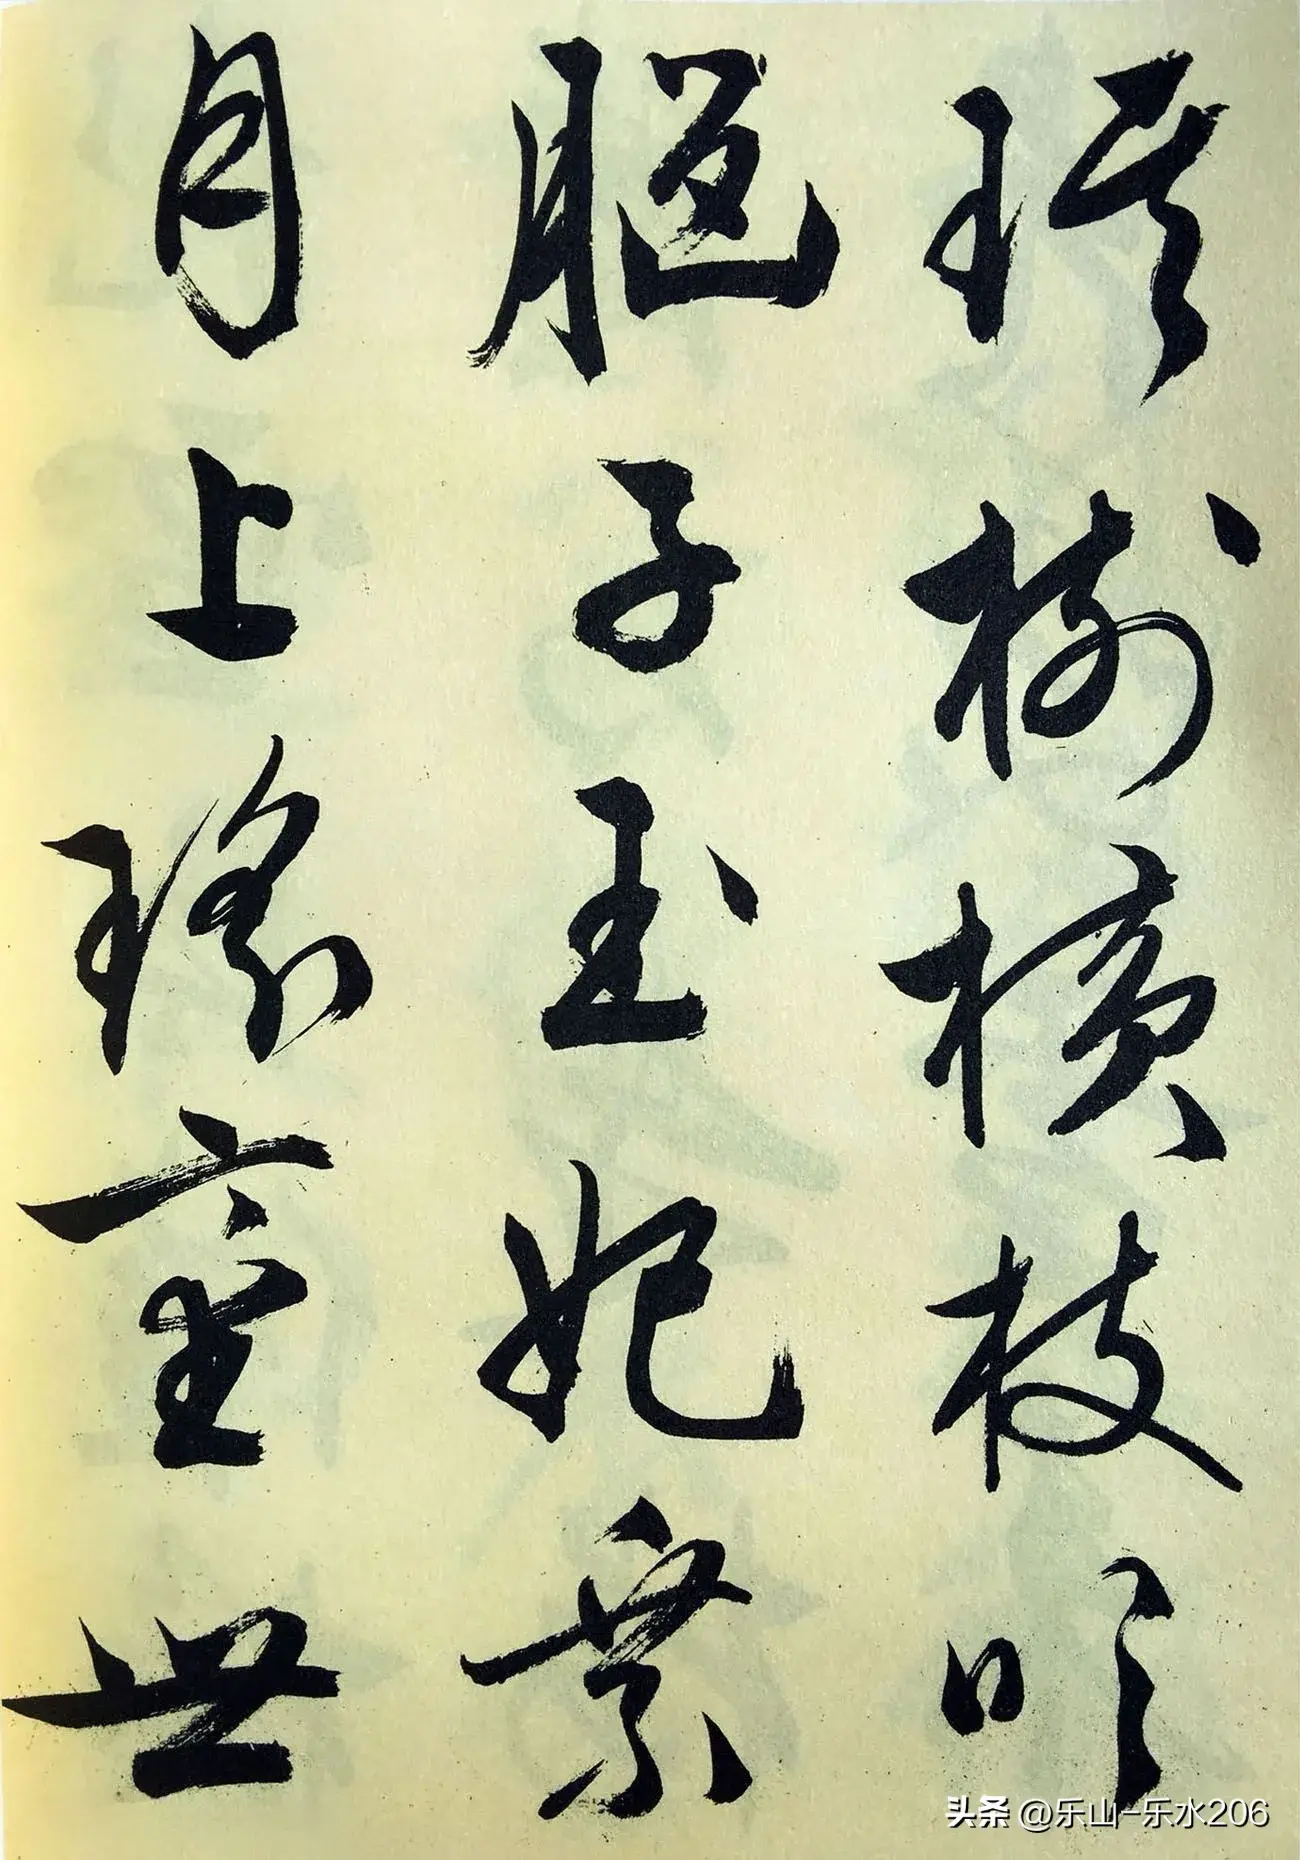 琪樹橫枝吹
腦子玉妃乘
月上瑤臺世
头条 @乐山-乐水206